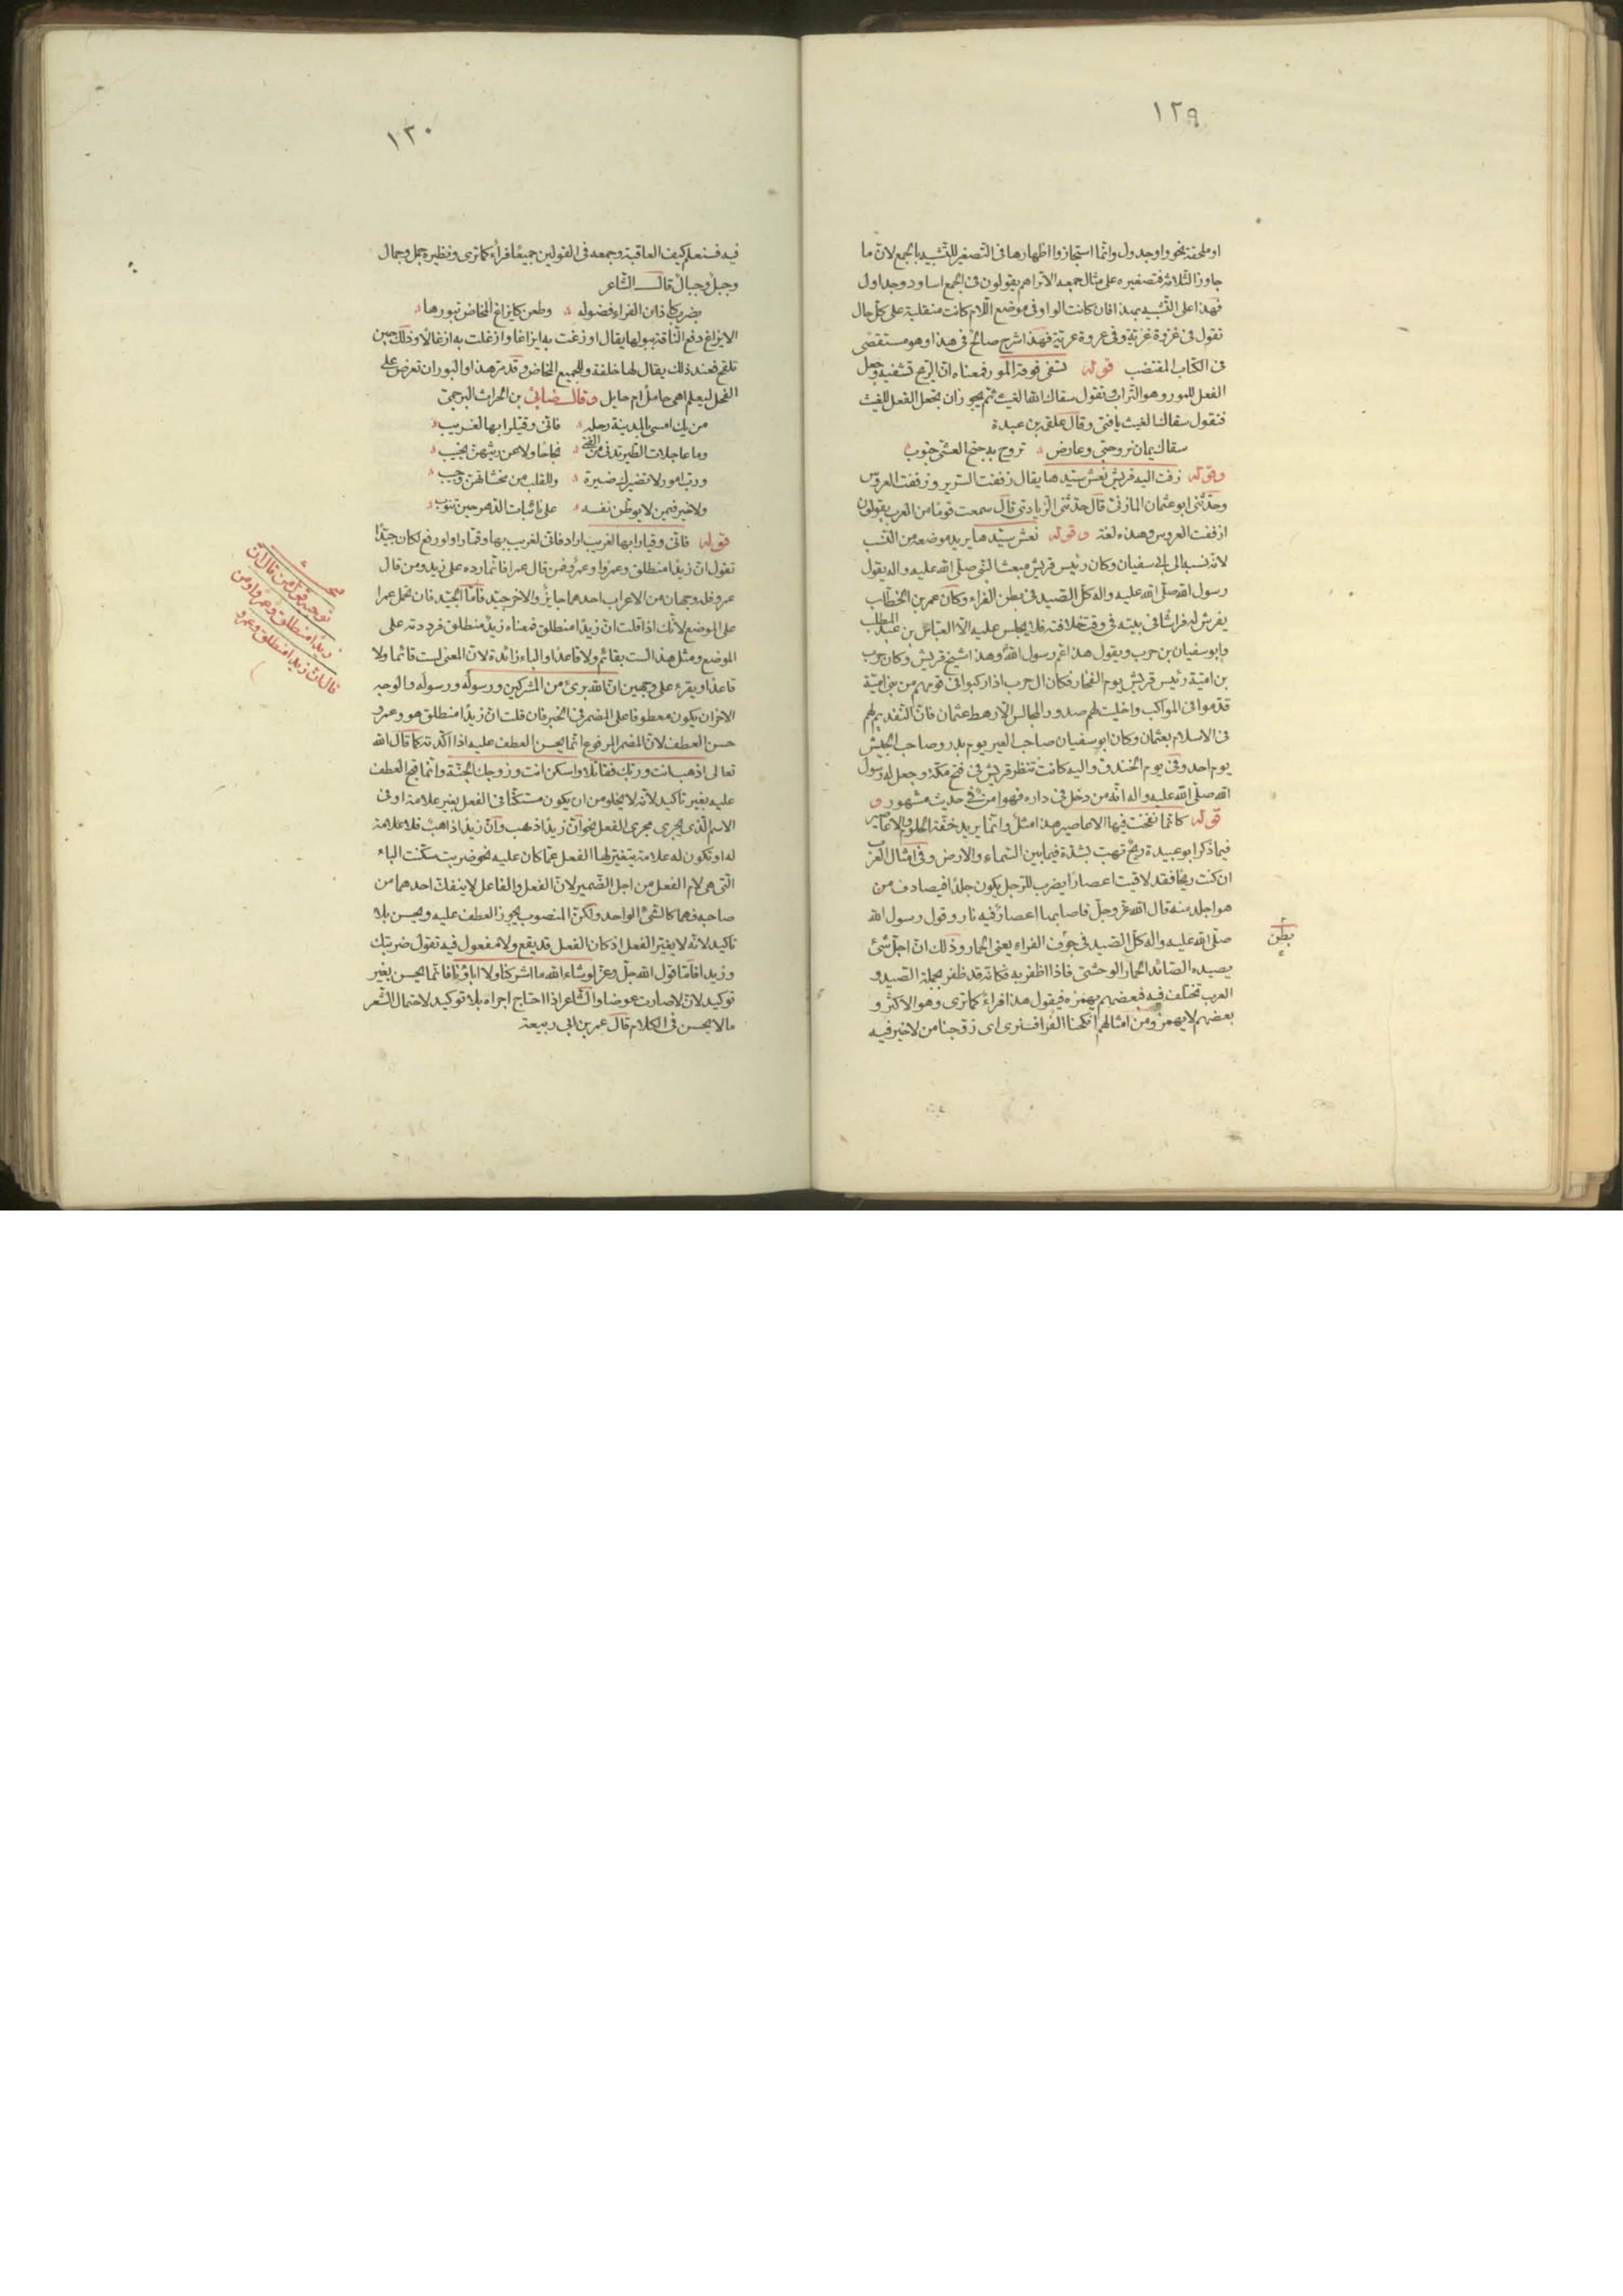 ١٢٩
او ملحقة نحو واو جدول وانما استجازوا اظهارها فى التصغير للتشبيه بالجمع لان ما
جاوز الثلاثة فتصغيره على مثال جمعه الا تراهم يقولون فى الجمع اساود وجداول
فهذا على التشبيه بهذا فان كانت الواو فى موضع اللام كانت منقلبة على كل حال
تقول فى غزوة غزية وفى عروة عرية فهذا شرح صالح فى هذا وهو مستقصى
فى الكتاب المقتضب قوله تسفى فوقه المور فمعناه ان الريح تسفيه وجعل
الفعل للمور وهو التراب وتقول سقاك الله الغيث ثم يجوز ان تجعل الفعل للغيث
فتقول سقاك الغيث يا فتى وقال علقمة بن عبدة
سقاك يمان ذو حبى وعارض تروح به جنح العشى جنوب
وقوله زفت اليه قريش نعش سيدها يقال زففت السرير وزففت العروس
وحدثنى ابو عثمان المازنى قال حدثنى الزيادى قال سمعت قوما من العرب يقولون
ازففت العروس وهذه لغة وقوله نعش سيدها يريد موضعه من النسب
لانه نسبه الى ابى سفيان وكان رئيس قريش مبعث النبى صلى الله عليه واله يقول
رسول الله صلى الله عليه واله كل الصيد فى بطن الفراء وكان عمر بن الخطاب
يفرش له فراشا فى بيته فى وقت خلافته فلا يجلس عليه الا العباس بن عبد المطلب
وابو سفيان بن حرب ويقول هذا عم رسول الله وهذا شيخ قريش وكان حرب
بن امية رئيس قريش يوم الفجار فكان ال حرب اذا ركبوا فى قومهم من بنى امية
قدموا فى المواكب واخليت لهم صدور المجالس الا رهط عثمان فان التقديم لهم
فى الاسلام بعثمان وكان ابو سفيان صاحب العير يوم بدر وصاحب الجيش
يوم احد وفى يوم الخندق واليه كانت تنظر قريش فى فتح مكة وجعل له رسول
الله صلى الله عليه واله انه من دخل فى داره فهو امن فى حديث مشهور و
قوله كانما نفخت فيها الاعاصير هذا مثل وانما يريد خفة الحلوم والاعاصير
فيما ذكر ابو عبيدة ريح تهب بشدة فيما بين السماء والارض وفى امثال العرب
ان كنت ريحا فقد لاقيت اعصارا يضرب للرجل يكون جلدا فيصادف من
هو اجلد منه قال الله عز وجل فاصابها اعصار فيه نار وقول رسول الله
صلى الله عليه واله كل الصيد فى جوف الفراء يعنى الحمار وذلك ان اجل شئ
بطن
يصيده الصائد الحمار الوحشى فاذا ظفر به فكانه قد ظفر بجملة الصيد و
العرب تختلف فيه فبعضهم يهمزه فيقول هذا فراء كما ترى وهو الاكثر و
بعضهم لا يهمز ومن امثالهم انكحنا الفرا فسنرى اى زوجنا من لا خير فيه
١٣٠
فيه فسنعلم كيف العاقبة وجمعه فى القولين جميعا فراء كما ترى ونظيره جمل وجمال
وجبل وجبال قال الشاعر
بضرب كاذان الفراء فضوله وطعن كايزاغ المخاض تبورها
الايزاغ دفع الناقة ببولها يقال اوزغت به ايزاغا وازغلت به ازغالا وذلك حين
تلقح فعند ذلك يقال لها خلفة وللجميع المخاض وقد مر هذا والبور ان تعرض على
الفحل ليعلم اهى حامل ام حايل وقال ضابئ بن الحراث البرجمى
من يك امسى بالمدينة رحله فانى وقيارا بها لغريب
وما عاجلات الطير تدنى من الفتى نجاحا ولا عن ريثهن يخيب
ورب امور لا تضيرك ضيرة وللقلب من مخشاتهن وجيب
ولا خير فيمن لا يوطن نفسه على نائبات الدهر حين تنوب
قوله فانى وقيارا بها لغريب اراد فانى لغريب بها وقيارا ولو رفع لكان جيدا
تقول ان زيدا منطلق وعمروا وعمرو فمن قال عمرا فانما رده على زيد ومن قال
عمرو فله وجهان من الاعراب احدهما جايز والاخر جيد فاما الجيد فان تحمل عمرا
على الموضع لانك اذا قلت ان زيدا منطلق فمعناه زيد منطلق فرددته على
الموضع ومثل هذا لست بقائم ولا قاعدا والباء زائدة لان المعنى لست قائما ولا
قاعدا ويقرء على وجهين ان الله برئ من المشركين ورسوله ورسوله والوجه
الاخر ان يكون معطوفا على المضمر فى الخبر فان قلت ان زيدا منطلق هو وعمرو
حسن العطف لان المضمر المرفوع انما يحسن العطف عليه اذا اكدته كما قال الله
تعالى اذهب انت وربك فقاتلا واسكن انت وزوجك الجنة وانما قبح العطف
عليه بغير تاكيد لانه لا يخلو من ان يكون مستكنا فى الفعل بغير علامة او فى
الاسم الذى يجرى مجرى الفعل نحو ان زيدا ذهب وان زيدا ذاهب فلا علامة
له او تكون له علامة يتغير لها الفعل عما كان عليه نحو ضربت سكنت الباء
التى هى لام الفعل من اجل الضمير لان الفعل والفاعل لا ينفك احدهما من
صاحبه فهما كالشئ الواحد ولكن المنصوب يجوز العطف عليه ويحسن بلا
تاكيد لانه لا يغير الفعل اذ كان الفعل قد يقع ولا مفعول فيه تقول ضربتك
وزيدا فاما قول الله جل وعز لو شاء الله ما اشركنا ولا اباؤنا فانما يحسن بغير
توكيد لان لا صارت عوضا والشاعر اذا احتاج اجراه بلا توكيد لاحتمال الشعر
ما لا يحسن فى الكلام قال عمر بن ابى ربيعة
مبحث
توجيه قول من قال ان
زيدا منطلق وعمروا ومن
قال ان زيدا منطلق وعمرو